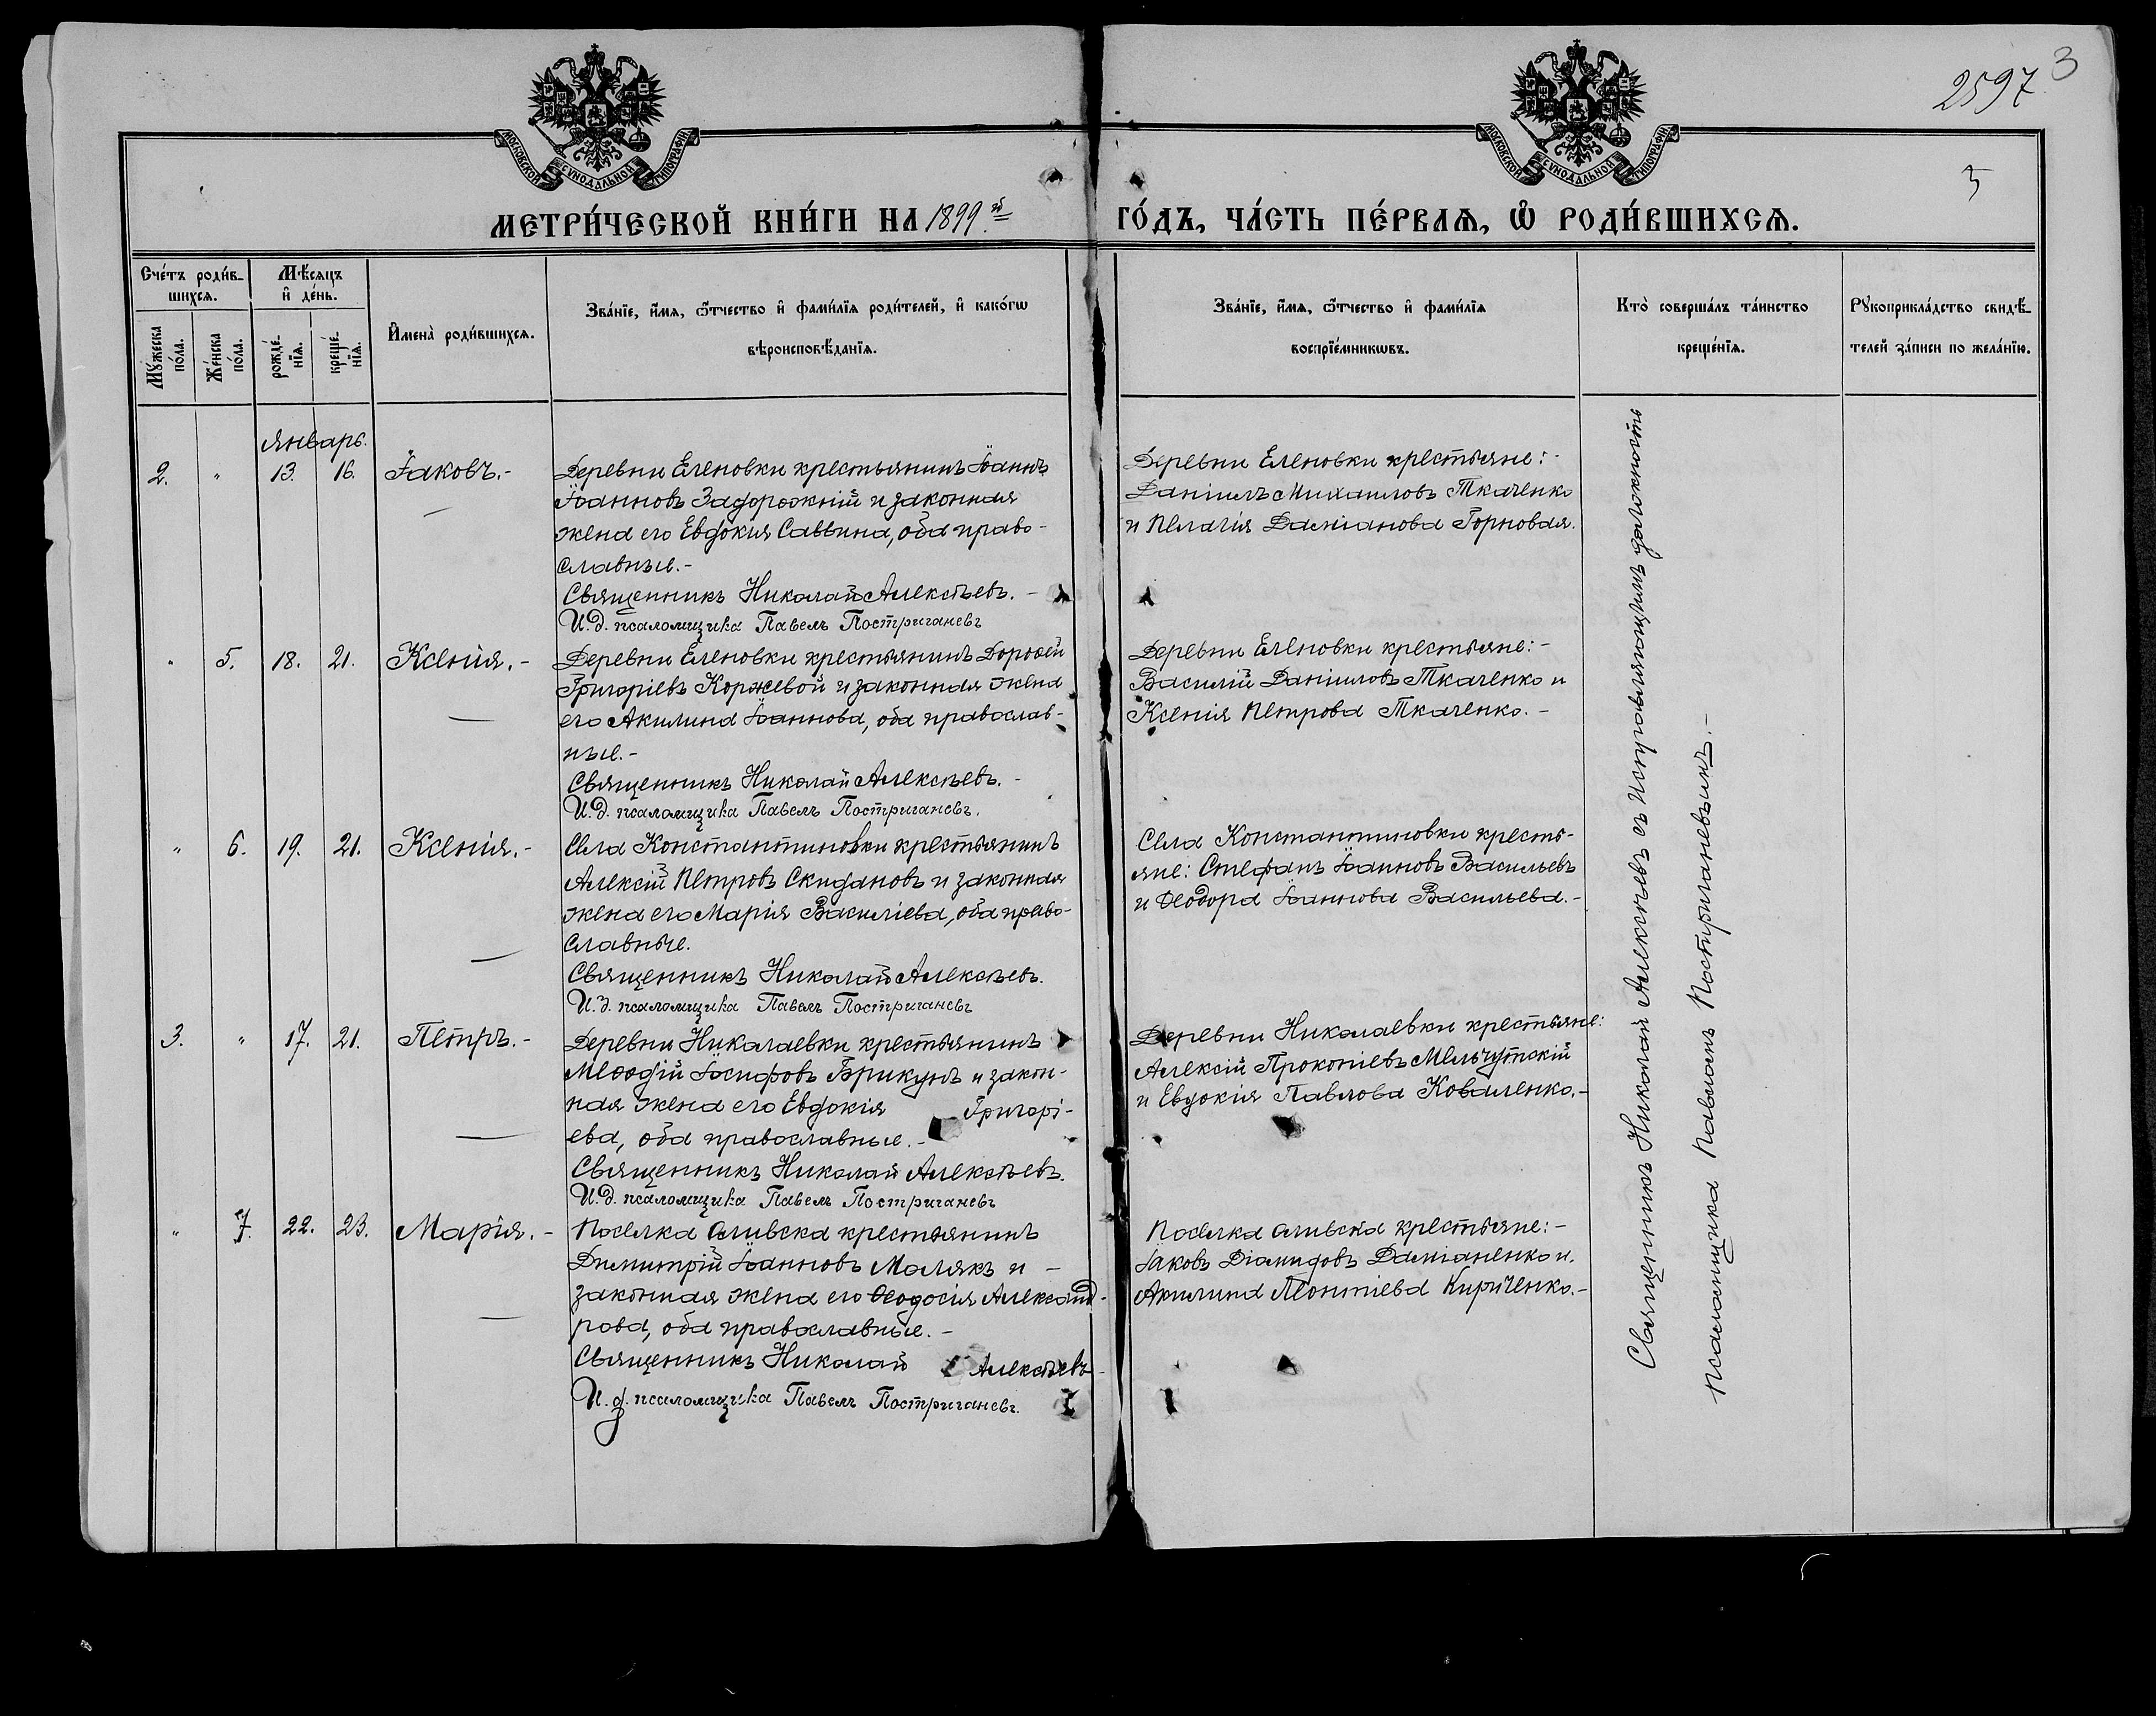 2597 3
МОСКОВСКОЙ СУНОДАЛЬНОЙ ТИПОГРАФІИ
МОСКОВСКОЙ СУНОДАЛЬНОЙ ТИПОГРАФІИ
5
МЕТРИ́ЧЕСКОЙ КНИ́ГИ НА 1899й ГО́ДЪ, ЧА́СТЬ ПЕ́РВАѦ, Ѡ҆ РОДИ́ВШИХСѦ.
Сче́тъ роди́в-
шихсѧ.
Мꙋ́жеска
по́ла.
Же́нска
по́ла.
Мѣ́сѧцъ
и҆ де́нь.
рожде́-
нїѧ.
креще́-
нїѧ.
И҆мена̀ роди́вшихсѧ.
Зва́нїе, и҆́мѧ, ѻ҆́тчество и҆ фами́лїѧ роди́телей, и҆ како́гѡ
вѣроисповѣ́данїѧ.
Зва́нїе, и҆́мѧ, ѻ҆́тчество и҆ фами́лїѧ
воспрїе́мникѡвъ.
Кто̀ соверша́лъ та́инство
креще́нїѧ.
Рꙋкоприкла́дство свидѣ́-
телей за́писи по жела́нїю.
Январь.
2. " 13. 16. Іаковъ.-
Деревни Еленовки крестьянинъ Іоаннъ
Іоанновъ Задорожній и законная
жена его Евдокія Саввина, оба право-
славные.-
Священникъ Николай Алексѣевъ.-
И.д. псаломщика Павелъ Постриганевъ
Деревни Еленовки крестьяне:-
Даніилъ Михаиловъ Ткаченко
и Пелагія Даміанова Горновая.
" 5. 18. 21. Ксенія.-
Деревни Еленовки крестьянинъ Дороѳей
Григоріевъ Коржевой и законная жена
его Акилина Іоаннова, оба православ-
ные.-
Священникъ Николай Алексѣевъ.-
И.д. псаломщика Павелъ Постриганевъ.
Деревни Еленовки крестьяне:-
Василій Даніиловъ Ткаченко и
Ксенія Петрова Ткаченко.-
" 6. 19. 21. Ксенія.-
Села Константиновки крестьянинъ
Алексій Петровъ Скидановъ и законная
жена его Марія Василіева, оба право-
славные.
Священникъ Николай Алексѣевъ.
И.д. псаломщика Павелъ Постриганевъ
Села Константиновки кресть-
яне: Стефанъ Іоанновъ Васильевъ
и Ѳеодора Іоаннова Васильева.-
3. " 17. 21. Петръ.-
Деревни Николаевки крестьянинъ
Меѳодій Іосифовъ Брикунъ и закон-
ная жена его Евдокія Григорі-
ева, оба православные.-
Священникъ Николай Алексѣевъ.
И.д. псаломщика Павелъ Постриганевъ
Деревни Николаевки крестьяне:
Алексій Прокопіевъ
и Евдокія Павлова Коваленко.-
" 7. 22. 23. Марія.-
Поселка крестьянинъ
Димитрій Іоанновъ Малякъ и -
законная жена его Ѳеодосія Александ-
рова, оба православные.-
Священникъ Николай Алексѣевъ
И.д. псаломщика Павелъ Постриганевъ.
Поселка крестьяне:-
Іаковъ Діамидовъ Даміаненко и
Акилина Леонтіева Кириченко.-
Священникъ Николай Алексѣевъ съ исправляющимъ должность
псаломщика Павломъ Постриганевымъ.-